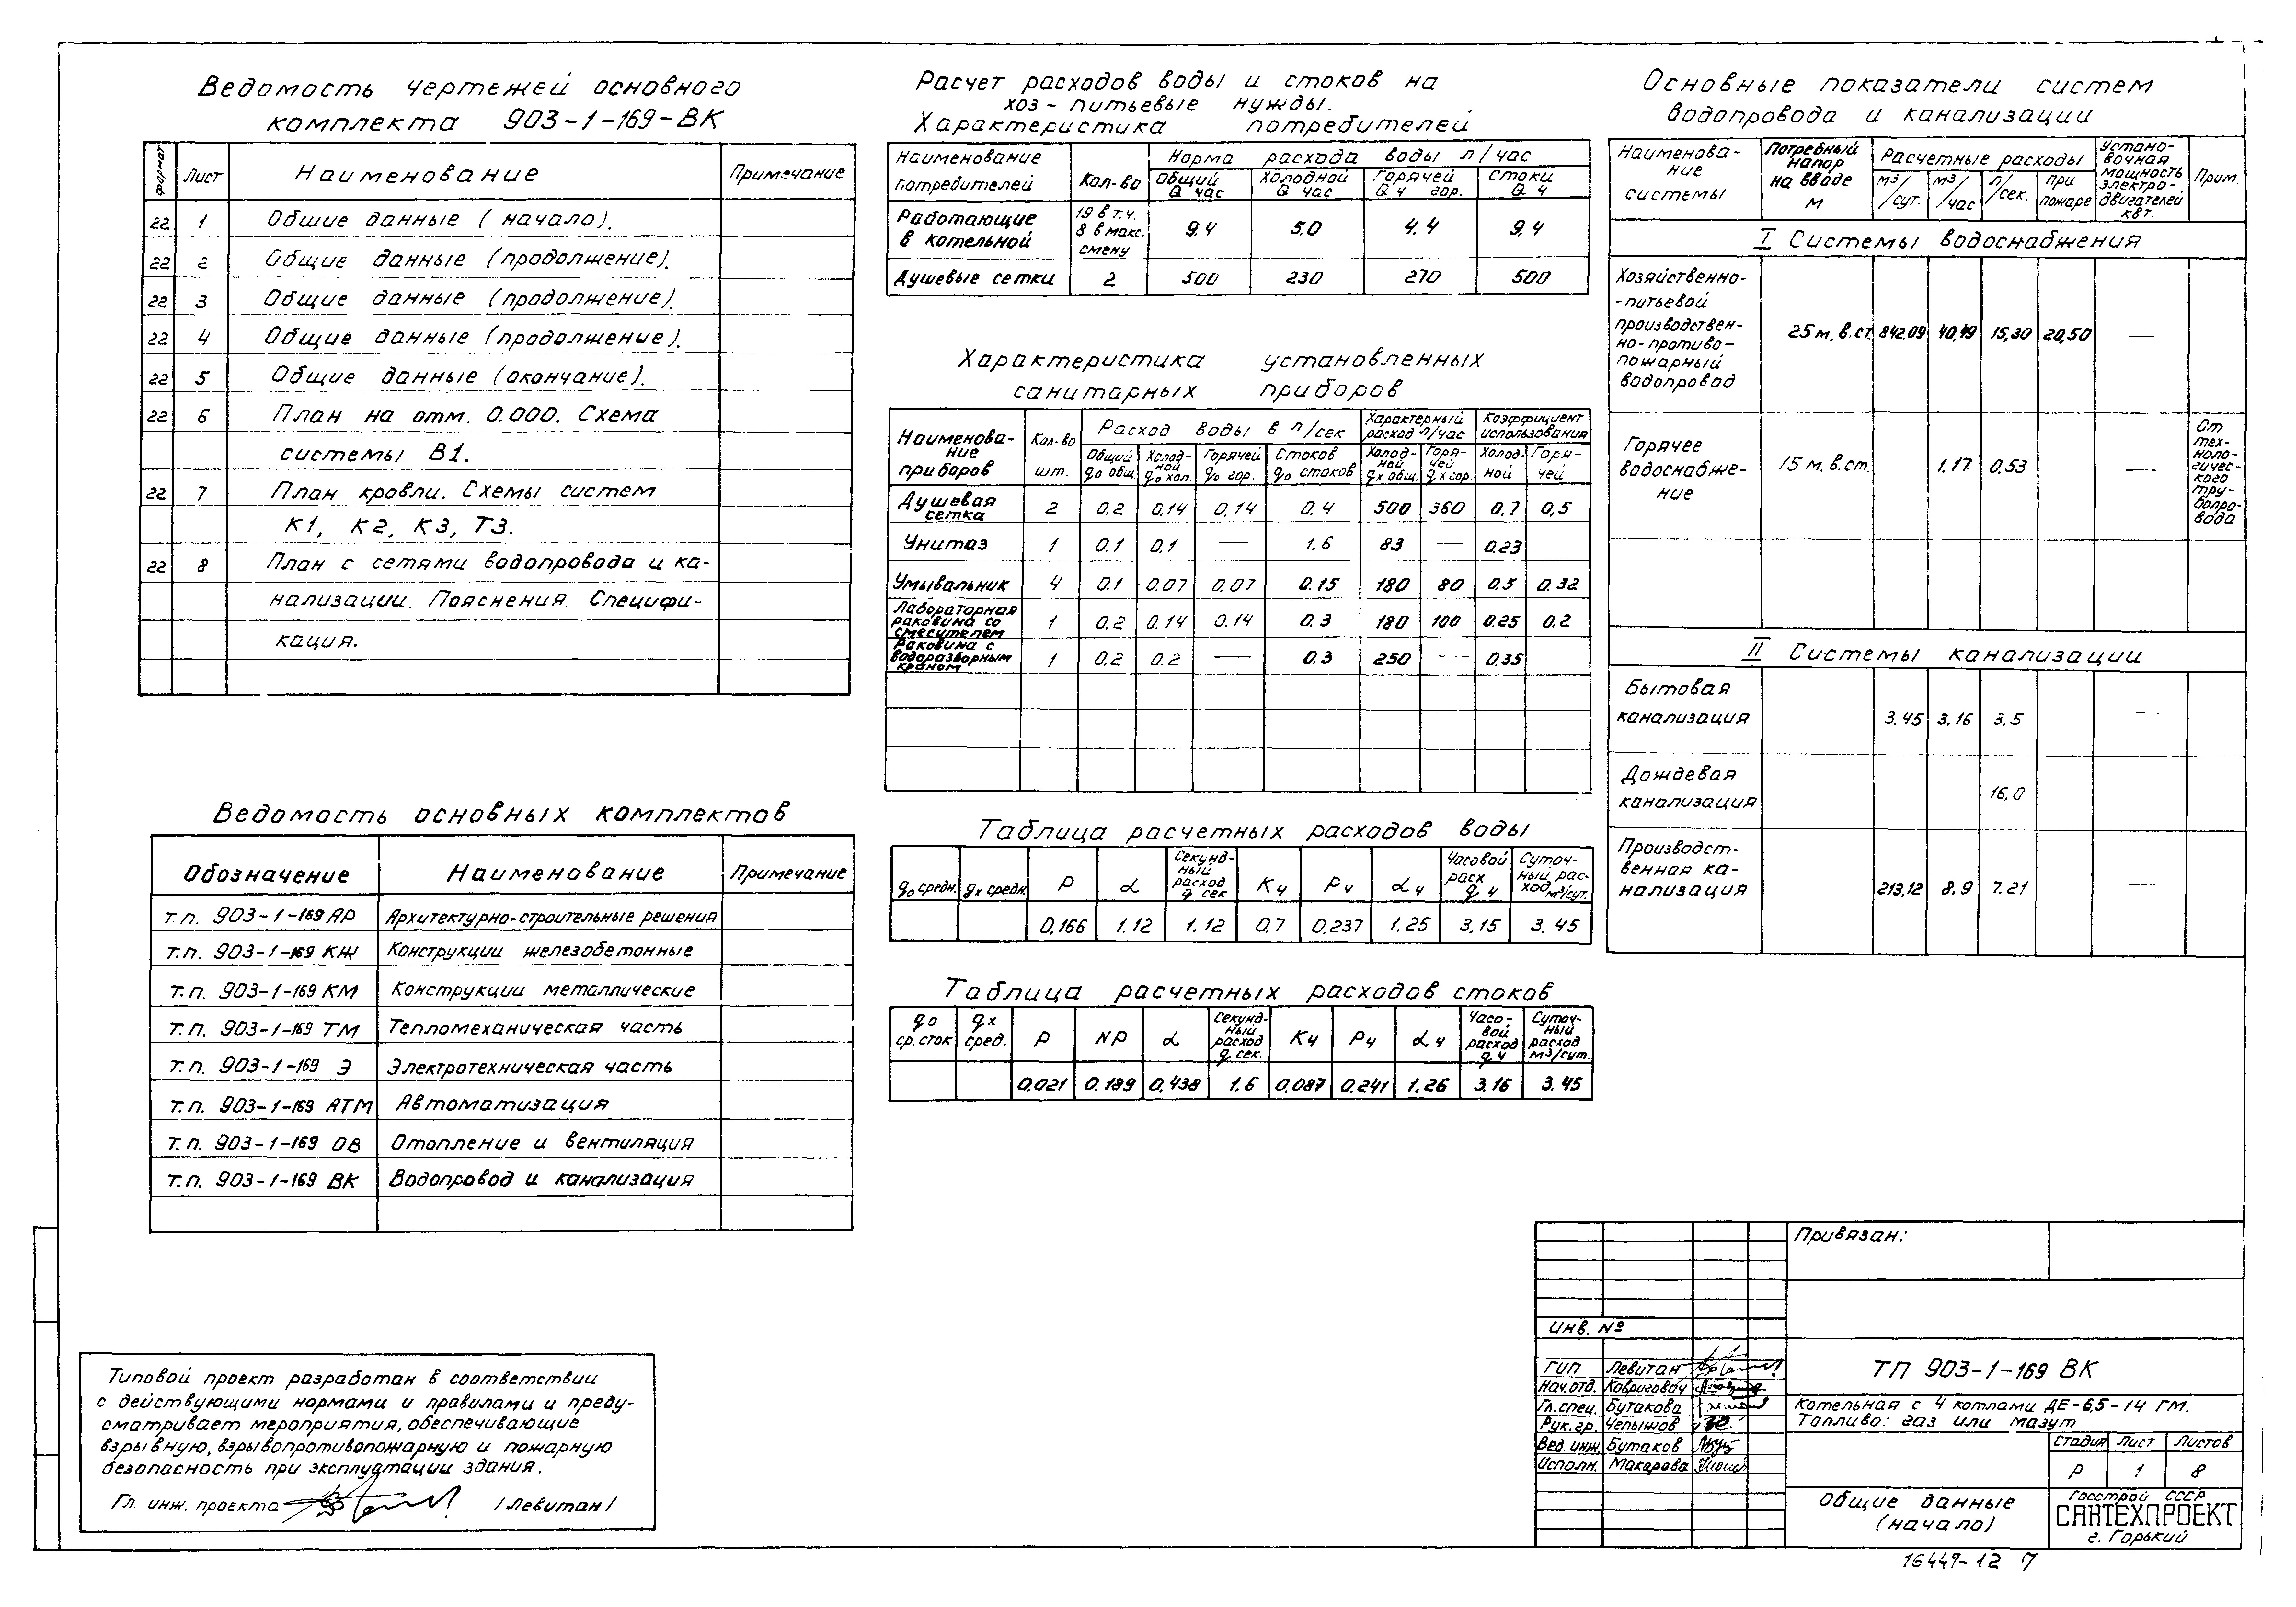 Ведомость чертежей основного
комплекта 903-1-169-ВК
формат Лист Наименование Примечание
22 1 Общие данные (начало).
22 2 Общие данные (продолжение).
22 3 Общие данные (продолжение).
22 4 Общие данные (продолжение).
22 5 Общие данные (окончание).
22 6 План на отм. 0.000. Схема
системы В1.
22 7 План кровли. Схемы систем
К1, К2, К3, Т3.
22 8 План с сетями водопровода и ка-
нализации. Пояснения. Специфи-
кация.
Ведомость основных комплектов
Обозначение Наименование Примечание
т.п. 903-1-169 АР Архитектурно-строительные решения
т.п. 903-1-169 КЖ Конструкции железобетонные
т.п. 903-1-169 КМ Конструкции металлические
т.п. 903-1-169 ТМ Тепломеханическая часть
т.п. 903-1-169 Э Электротехническая часть
т.п. 903-1-169 АТМ Автоматизация
т.п. 903-1-169 ОВ Отопление и вентиляция
т.п. 903-1-169 ВК Водопровод и канализация
Типовой проект разработан в соответствии
с действующими нормами и правилами и преду-
сматривает мероприятия, обеспечивающие
взрывную, взрывопротивопожарную и пожарную
безопасность при эксплуатации здания.
Гл. инж. проекта /Левитан/
Расчет расходов воды и стоков на
хоз-питьевые нужды.
Характеристика потребителей
Наименование потребителей Кол-во Норма расхода воды л/час
Общий Q час Холодной Q час Горячей Q ч гор. Стоки Q ч
Работающие в котельной 19 в т.ч. 8 в макс. смену 9.4 5.0 4.4 9.4
Душевые сетки 2 500 230 270 500
Характеристика установленных
санитарных приборов
Наименова-ние приборов Кол-во шт. Расход воды в л/сек Характерный расход л/час Коэффициент использования
Общий qо общ. Холод-ной qо хол. Горячей qо гор. Стоков qо стоков Холод-ной qх общ. Горя-чей qх гор. Холод-ной Горя-чей
Душевая сетка 2 0,2 0,14 0,14 0,4 500 360 0,7 0,5
Унитаз 1 0.1 0.1 — 1,6 83 — 0.23
Умывальник 4 0.1 0.07 0.07 0.15 180 80 0.5 0.32
Лабораторная раковина со смесителем 1 0.2 0.14 0.14 0.3 180 100 0.25 0.2
Раковина с водоразборным краном 1 0.2 0.2 — 0.3 250 — 0.35
Таблица расчетных расходов воды
qо средн. qх средн. P α Секунд-ный расход q сек Kч Pч αч Часовой расх q ч Суточ-ный рас-ход м³/сут.
0,166 1,12 1.12 0,7 0,237 1.25 3,15 3,45
Таблица расчетных расходов стоков
qо ср. сток qх сред. P NP α Секунд-ный расход q сек. Kч Pч αч Часо-вой расход q ч Суточ-ный расход м³/сут.
0,021 0.189 0,438 1,6 0,087 0.241 1,26 3.16 3.45
Основные показатели систем
водопровода и канализации
Наименова-ние системы Потребный напор на вводе м Расчетные расходы Устано-вочная мощность электро-двигателей квт. Прим.
м³/сут. м³/час л/сек. при пожаре
I Системы водоснабжения
Хозяйственно-
-питьевой
производствен-
но-противо-
пожарный
водопровод 25 м. в. ст. 842.09 40,49 15,30 20,50 —
Горячее
водоснабже-
ние 15 м. в. ст. 1.17 0.53 — От тех-ноло-гичес-кого тру-бопро-вода
II Системы канализации
Бытовая
канализация 3.45 3,16 3,5 —
Дождевая
канализация 16,0
Производст-
венная ка-
нализация 213,12 8.9 7.21 —
Привязан:
Инв. №
ГИП Левитан
Нач.отд. Ковригович
Гл.спец. Бутакова
Рук.гр. Чепыжов
Вед. инж. Бутаков
Исполн. Макарова
ТП 903-1-169 ВК
Котельная с 4 котлами ДЕ-6,5-14 ГМ.
Топливо: газ или мазут
Стадия Лист Листов
Р 1 8
Общие данные
(начало)
Госстрой СССР
САНТЕХПРОЕКТ
г. Горький
16447-12 7